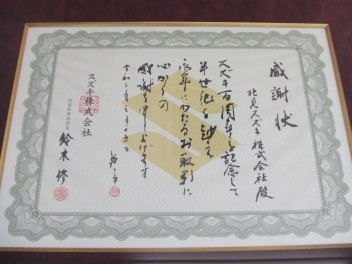 感謝状
北見スズキ株式会社殿
スズキ百周年を記念して
半世紀を越える
永年にわたるお取引に
心からの
感謝を申し上げます
スズキ株式会社
鈴木修